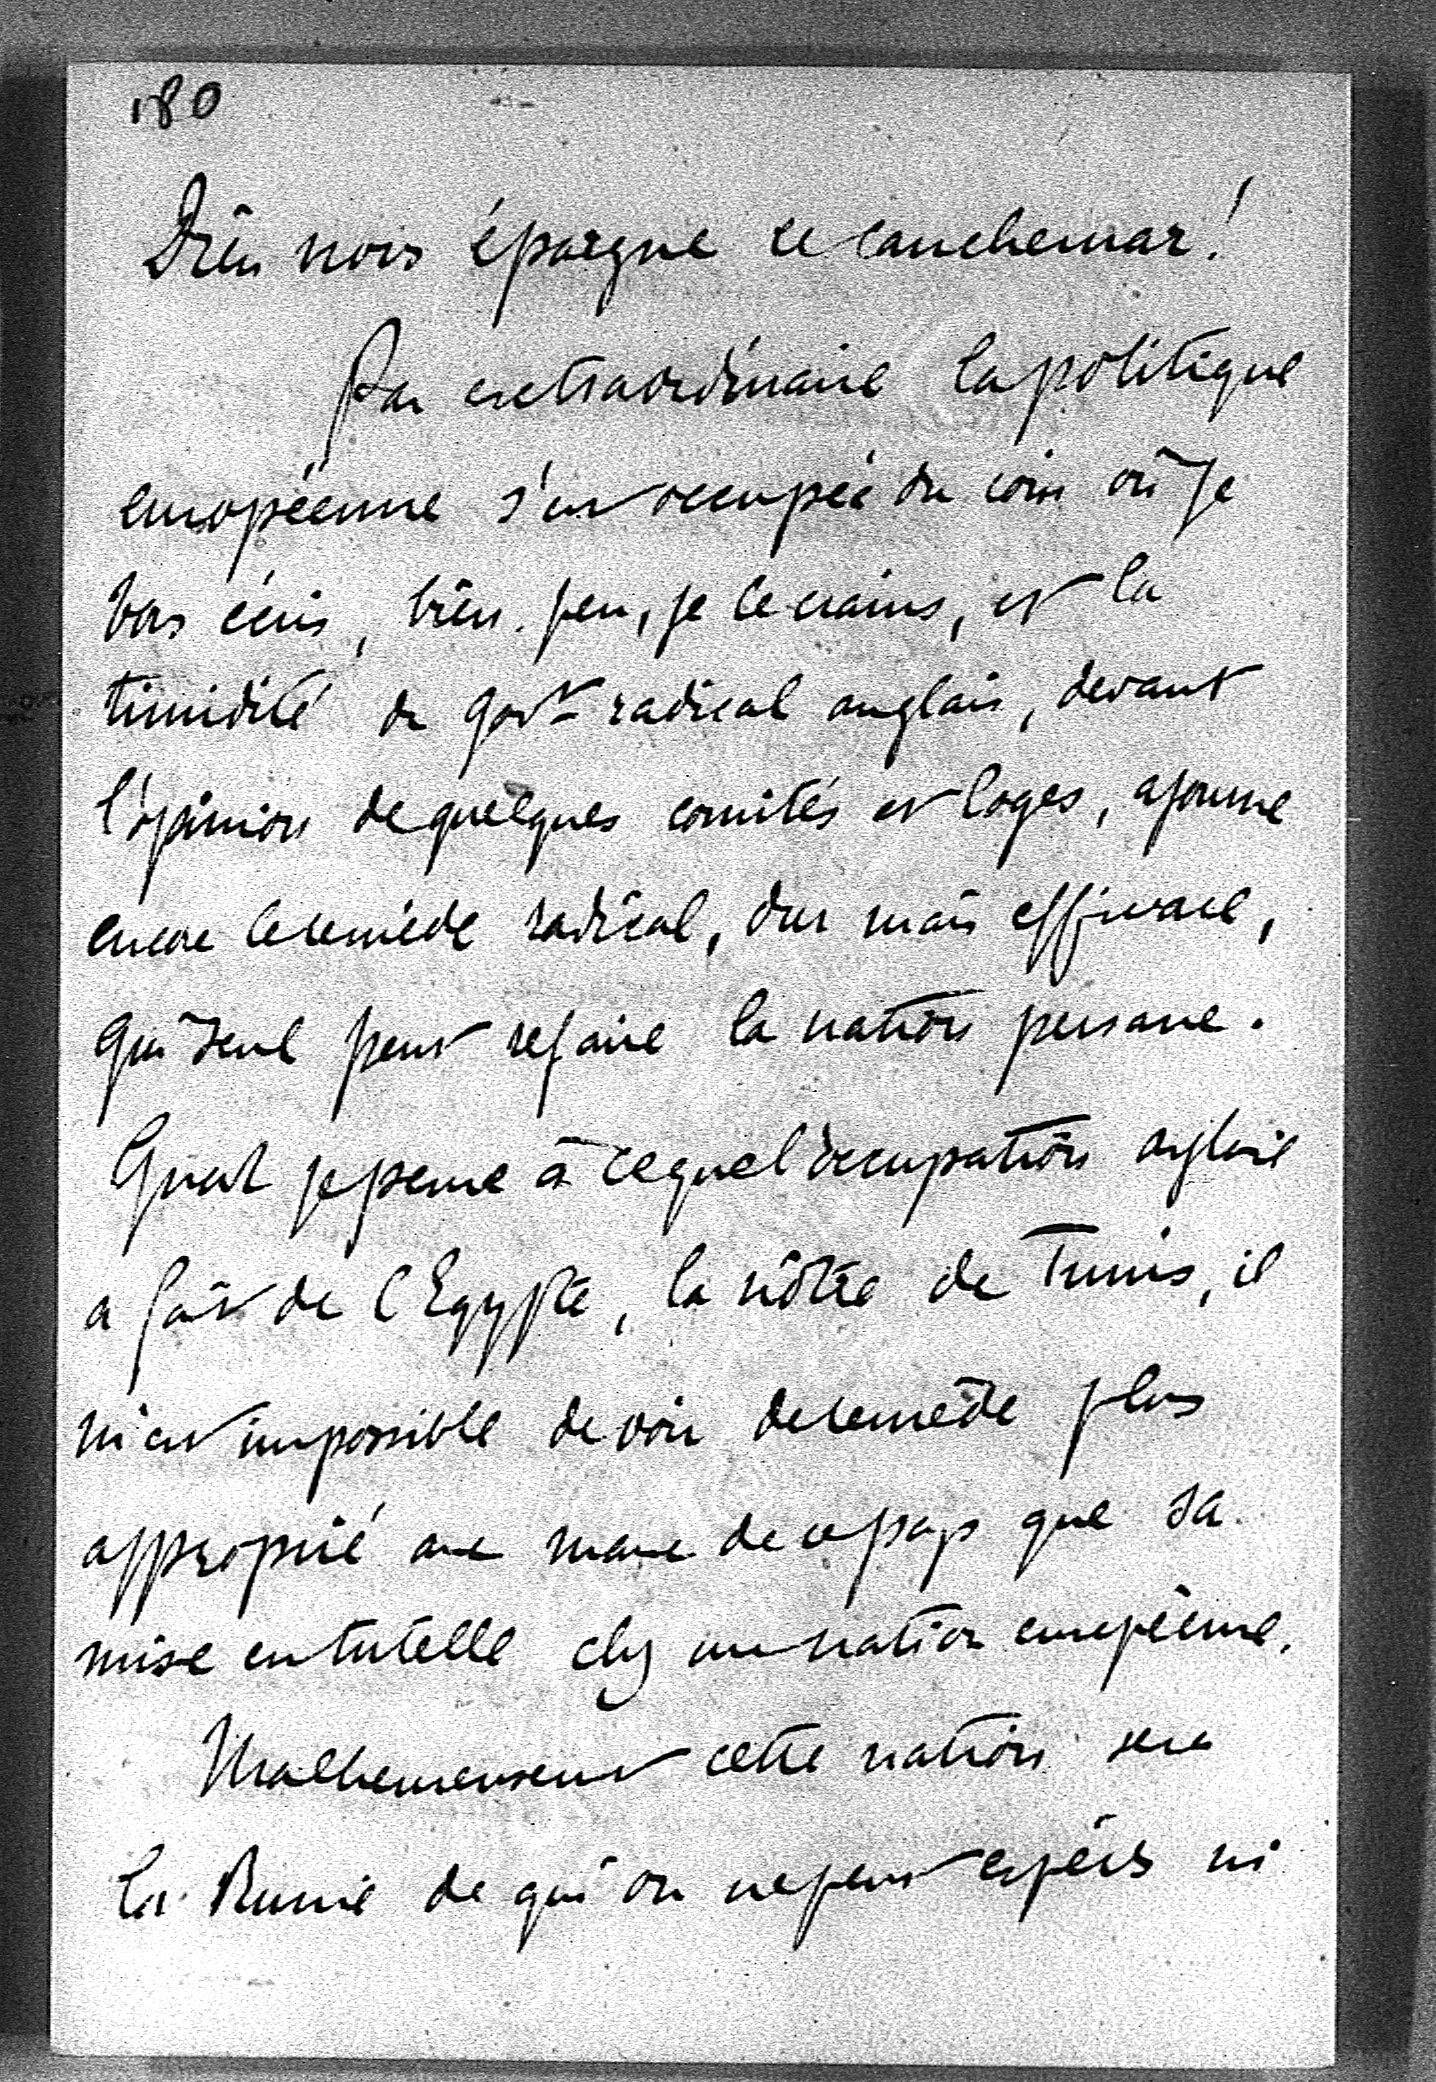 180
Dieu nous épargne ce cauchemar!
Par extraordinaire la politique
européenne s'est occupée du coin où je
vous écris, bien peu, je le crains, et la
timidité du govt radical anglais, devant
l'opinion de quelques comités et loges, ajourne
encore le remède radical, dur mais efficace,
qui seul peut refaire la nation persane.
Quand je pense à ce que l'occupation anglaise
a fait de l'Egypte, la nôtre de Tunis, il
m'est impossible de voir de remède plus
approprié aux maux de ce pays que sa
mise en tutelle chez une nation européenne.
Malheureusement cette nation sera
la Russie de qui on ne peut espérer ni